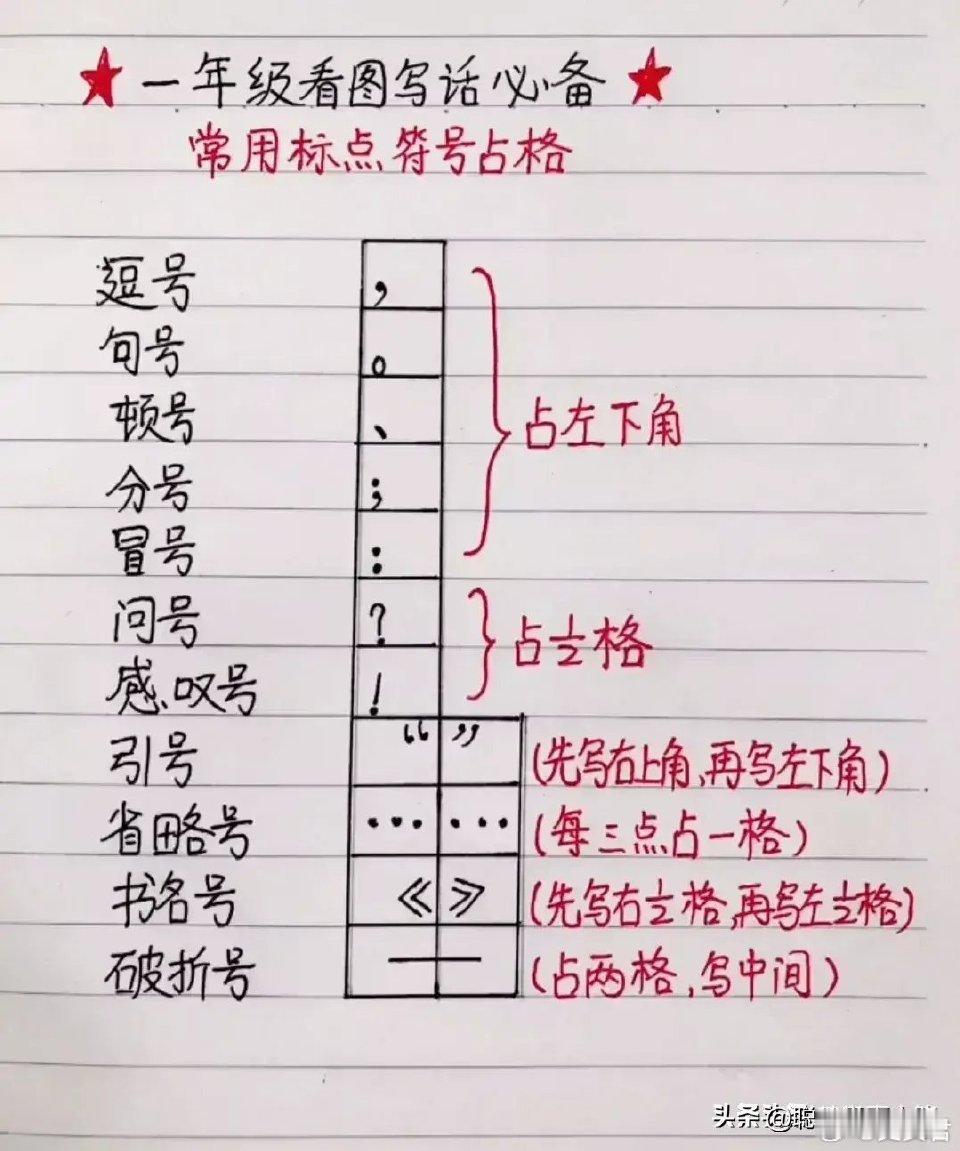 ★一年级看图写话必备★
常用标点符号占格
逗号 ，
句号 。
顿号 、
占左下角
分号 ；
冒号 ：
问号 ？
占½格
感叹号 ！
引号 “ ” (先写右上角,再写左下角)
省略号 …… (每三点占一格)
书名号 《 》 (先写右½格,再写左½格)
破折号 —— (占两格,写中间)
头条 @聪